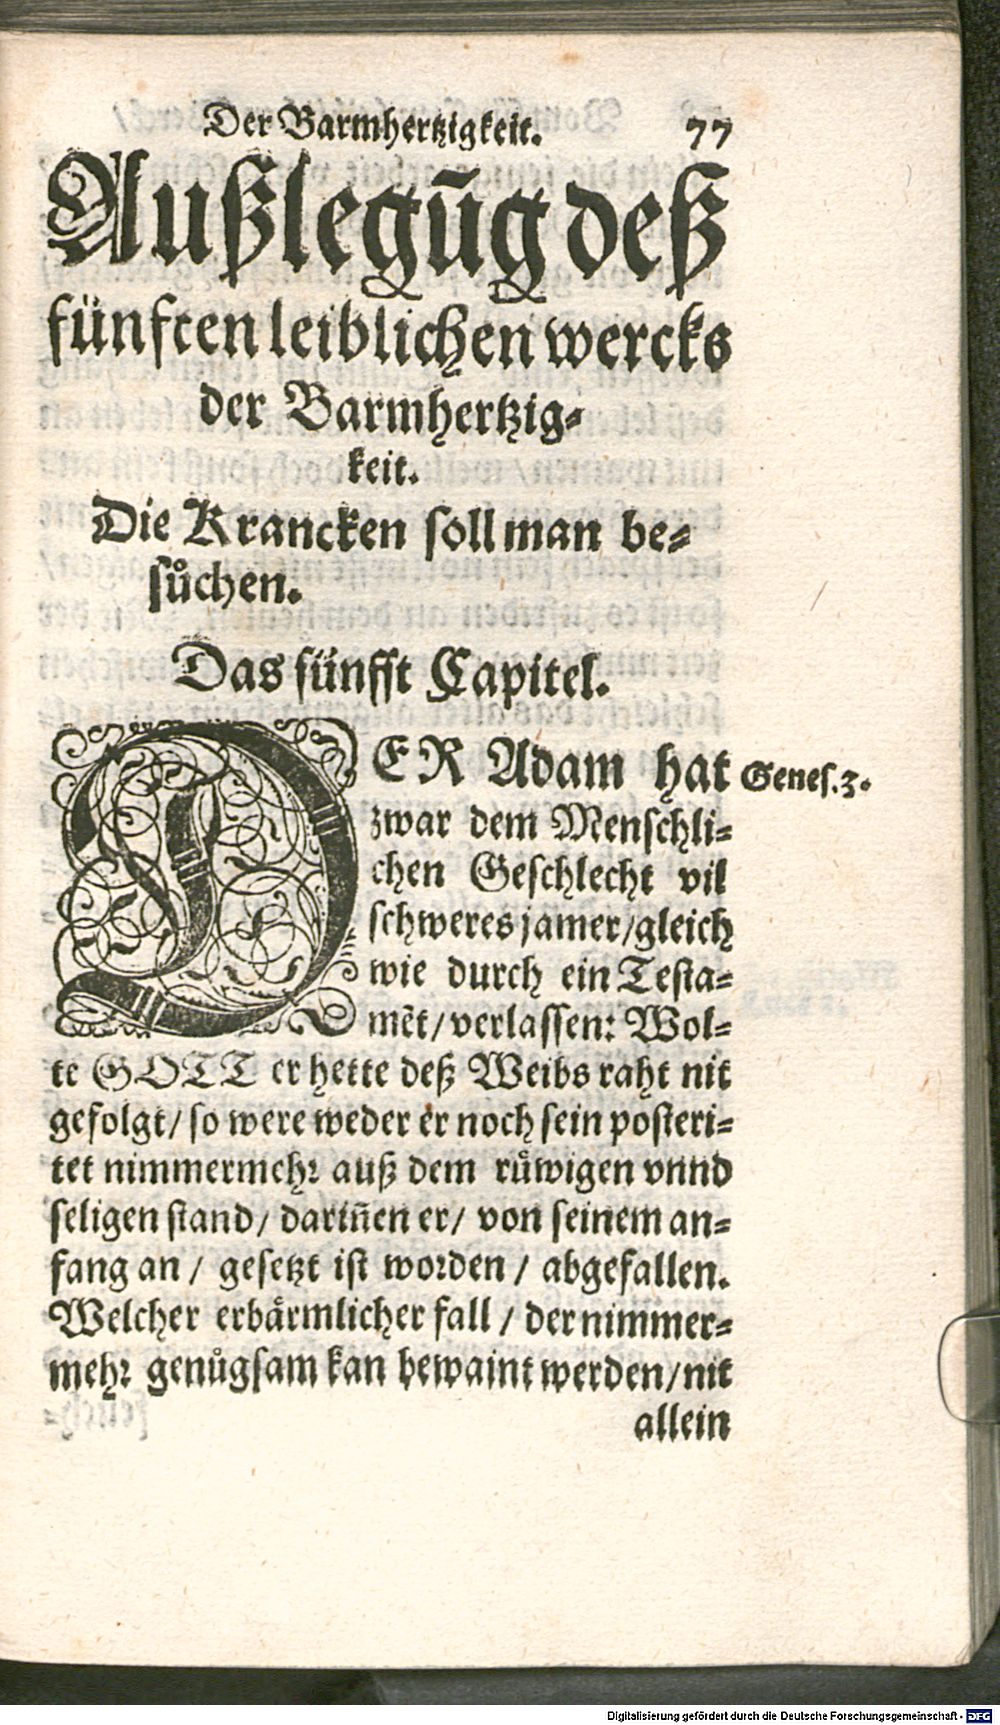 Der Barmhertzigkeit. 77
Außlegũg deß
fünften leiblichen wercks
der Barmhertzig-
keit.
Die Krancken soll man be-
sůchen.
Das fünfft Capitel.
DER Adam hat Genes.3.
zwar dem Menschli-
chen Geschlecht vil
schweres jamer/gleich
wie durch ein Testa-
mẽt/verlassen: Wol-
te GOTT er hette deß Weibs raht nit
gefolgt/ so were weder er noch sein posteri-
tet nimmermehr auß dem růwigen vnnd
seligen stand/ dariñen er/ von seinem an-
fang an/ gesetzt ist worden/ abgefallen.
Welcher erbärmlicher fall/ der nimmer-
mehr genůgsam kan bewaint werden/nit
allein
Digitalisierung gefördert durch die Deutsche Forschungsgemeinschaft - DFG